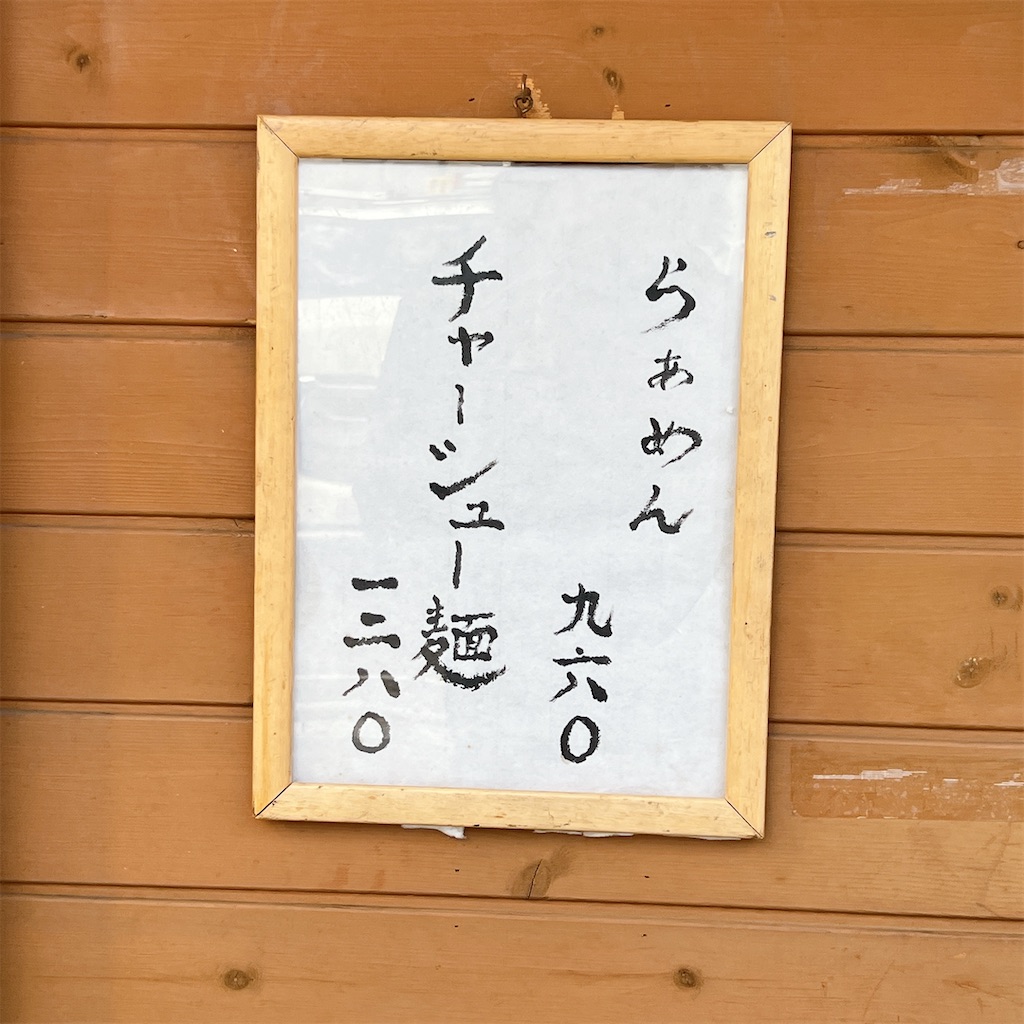 らぁめん
九六〇
チャーシュー麺
一三八〇